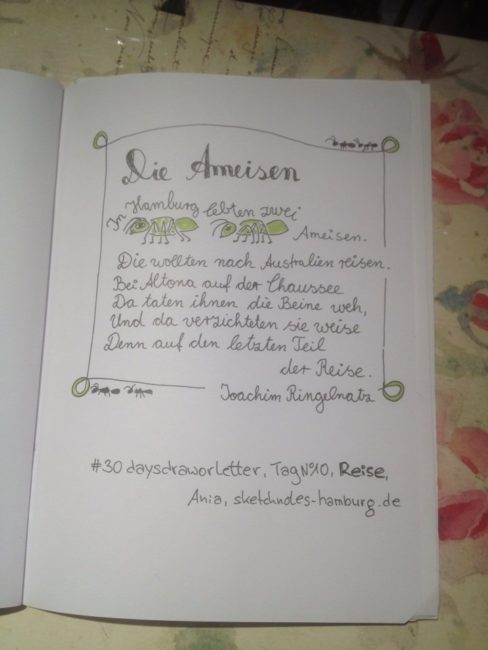 Die Ameisen
In Hamburg lebten zwei
Ameisen.
Die wollten nach Australien reisen.
Bei Altona auf der Chaussee
Da taten ihnen die Beine weh,
Und da verzichteten sie weise
Denn auf den letzten Teil
der Reise.
Joachim Ringelnatz
#30daysdraworletter, Tag N°10, Reise,
Ania, sketchndes-hamburg.de